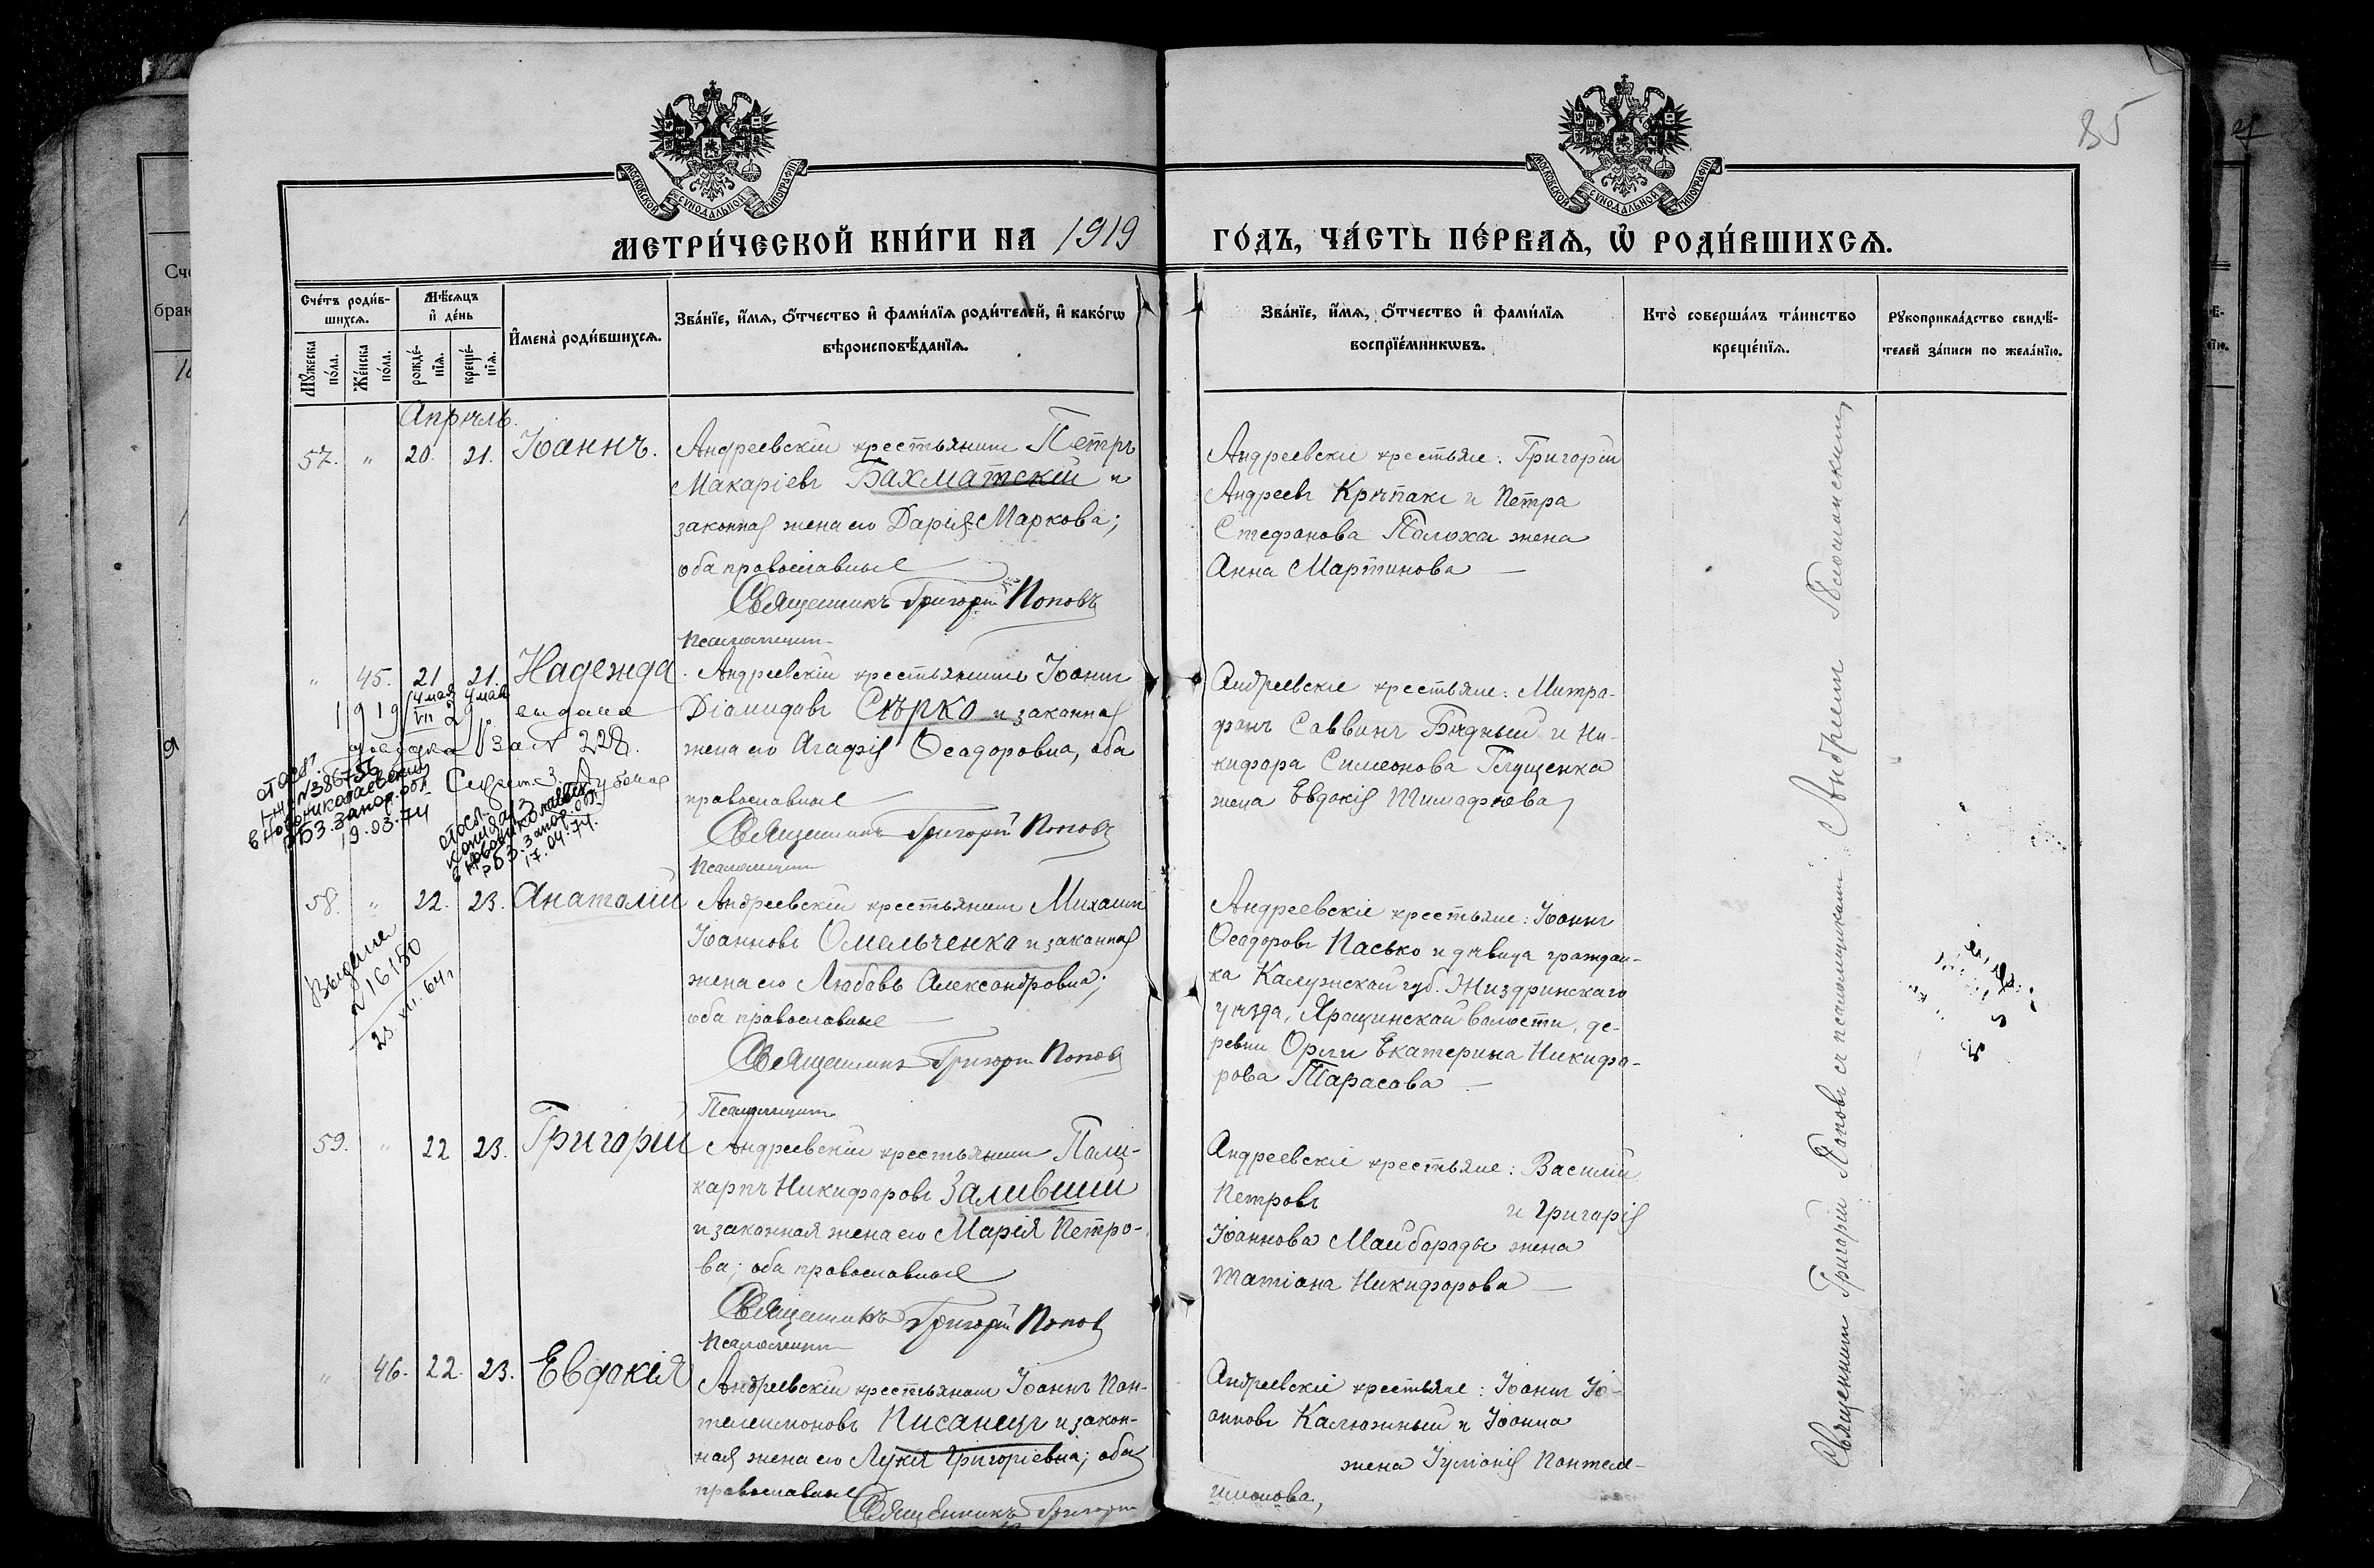 МОСКОВСКОЙ СѴНОДАЛЬНОЙ ТИПОГРАФІИ
МОСКОВСКОЙ СѴНОДАЛЬНОЙ ТИПОГРАФІИ
35
МЕТРИ́ЧЕСКОЙ КНИ́ГИ НА 1919
ГО́ДЪ, ЧА́СТЬ ПЕ́РВАѦ, Ѽ РОДИ́ВШИХСѦ.
Сче́тъ роди́в-
шихсѧ.
Мꙋ́жеска по́ла.
Же́нска по́ла.
Мѣ́сѧцъ
и҆ де́нь
рожде́-
нїѧ.
креще́-
нїѧ.
И҆мена̀ роди́вшихсѧ.
Зва́нїе, и҆́мѧ, ѻ҆́тчество и҆ фами́лїѧ роди́телей, и҆ како́гѡ
вѣроисповѣ́данїѧ.
Зва́нїе, и҆́мѧ, ѻ҆́тчество и҆ фами́лїѧ
воспрїе́мникѡвъ.
Кто̀ соверша́лъ та́инство
креще́нїѧ.
Рꙋкоприкла́дство свидѣ́-
телей за́писи по жела́нїю.
Апрѣль.
57. " 20. 21. Іоаннъ.
Андреевскій крестьянинъ Петръ
Макаріевъ Бахматскій и
законная жена его Дарія Маркова;
оба православные
Священникъ Григорій Поповъ
Псаломщикъ
Андреевскіе крестьяне: Григорій
Андреевъ Крѣпакъ и Петра
Стефанова Палоха жена
Анна Мартинова
" 45. 21 21. Надежда.
4 мая 4 мая
1919/VII 29 выдана
справка за № 228.
19.03.74
17.04.74.
Андреевскій крестьянинъ Іоаннъ
Діомидовъ Сѣрко и законная
жена его Агафія Ѳеодоровна, оба
православные
Священникъ Григорій Поповъ
Псаломщикъ
Андреевскіе крестьяне: Митро-
фанъ Саввинъ Бѣдный и Ни-
кифора Симеонова Глущенка
жена Евдокія Тимофѣева
58. " 22. 23. Анатолій
Выдано
№ 16150
23.VII.64г
Андреевскій крестьянинъ Михаилъ
Іоанновъ Омельченко и законная
жена его Любовь Александровна;
оба православные
Священникъ Григорій Поповъ
Псаломщикъ
Андреевскіе крестьяне: Іоаннъ
Ѳеодоровъ Пасько и дѣвица граждан-
ка Калужской губ. Жиздринскаго
уѣзда, волости, де-
ревни Екатерина Никифо-
рова Тарасова
59. " 22 23. Григорій
Андреевскій крестьянинъ Поли-
карпъ Никифоровъ Заливший
и законная жена его Марія Петро-
ва; оба православные
Священникъ Григорій Поповъ
Псаломщикъ
Андреевскіе крестьяне: Василій
Петровъ и Григорія
Іоаннова Майбороды жена
Татіана Никифорова
" 46. 22. 23. Евдокія
Андреевскій крестьянинъ Іоаннъ Пан-
телеимоновъ Писанецъ и закон-
ная жена его Лукія Григоріевна; оба
православные
Священникъ Григорій
Андреевскіе крестьяне: Іоаннъ Іо-
анновъ Калюжный и Іоанна
жена Іуліанія Пантеле-
имонова,
Священникъ Григорій Поповъ съ псаломщикомъ Андреемъ